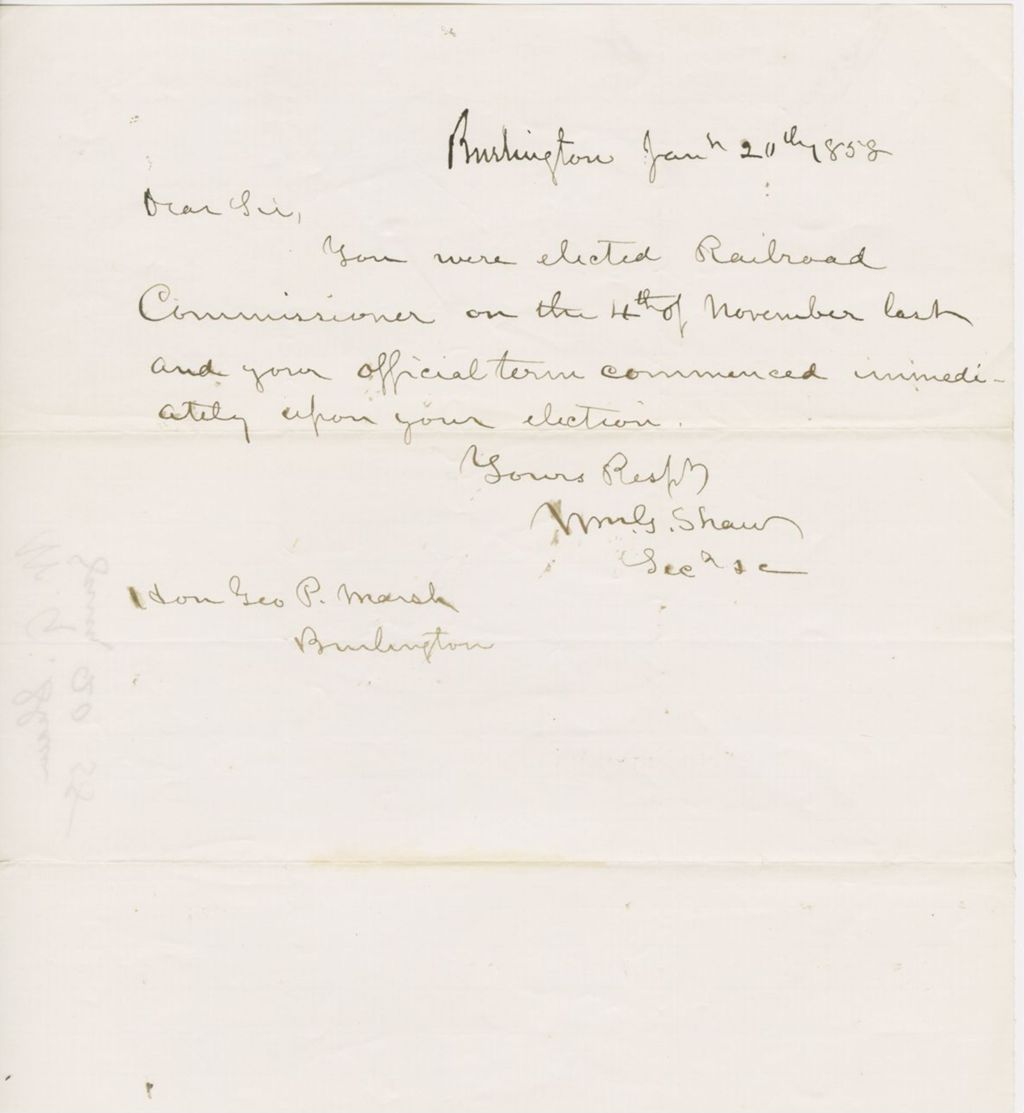 Burlington Jany 20th 1858
Dear Sir,
You were elected Railroad
Commissioner on the 4th of November last
and your official term commenced immedi-
ately upon your election.
Yours Respy
Wm. G. Shaw
Secy &c
Hon Geo P. Marsh
Burlington